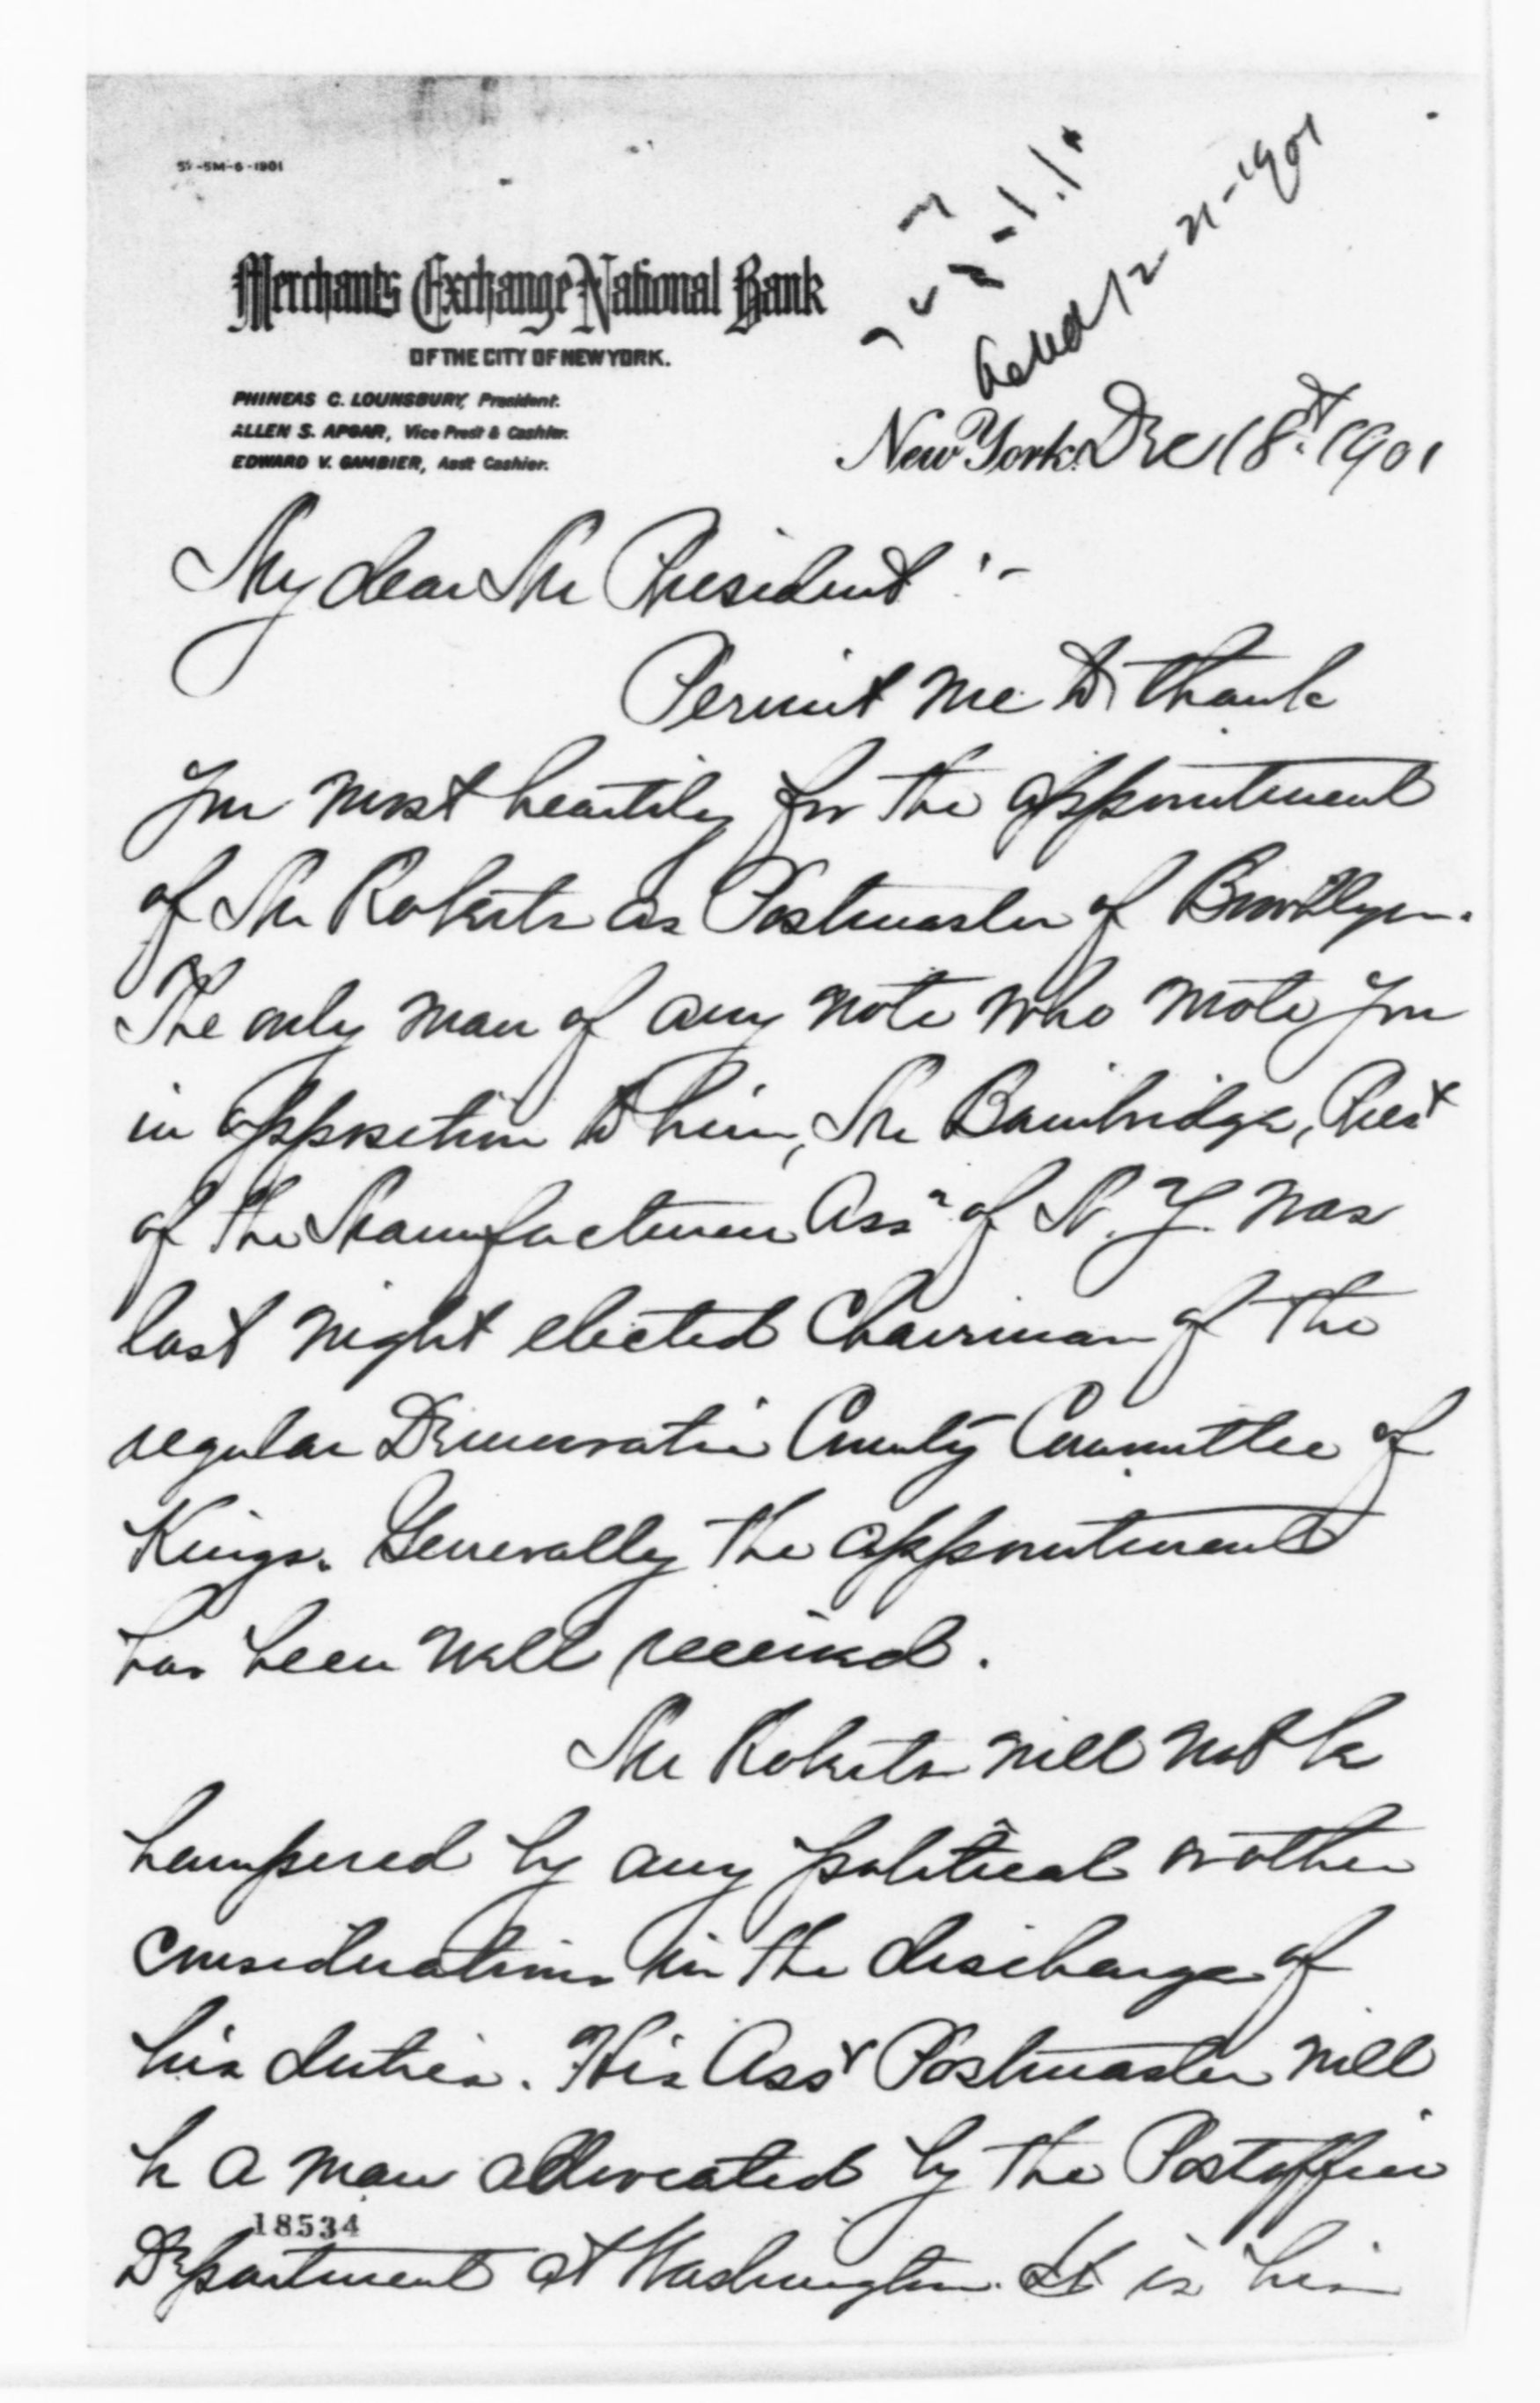 52-5M-6-1901
Ackd 12-21-1901
Merchants Exchange National Bank
OF THE CITY OF NEW YORK.
PHINEAS C. LOUNSBURY, President.
ALLEN S. APGAR, Vice Prest & Cashier.
EDWARD V. GAMBIER, Asst Cashier.
New York. Dec 18th 1901
My dear Mr President :-
Permit me to thank
you most heartily for the appointment
of Mr Roberts as Postmaster of Brooklyn.
The only man of any note who wrote you
in opposition to him, Mr Bainbridge, Prest
of the Manufacturers Assn of N. Y. was
last night elected Chairman of the
regular Democratic County Committee of
Kings. Generally the appointment
has been well received.
Mr Roberts will not be
hampered by any political or other
considerations in the discharge of
his duties. His Asst Postmaster will
be a man advocated by the Postoffice
18534
Department at Washington. It is his